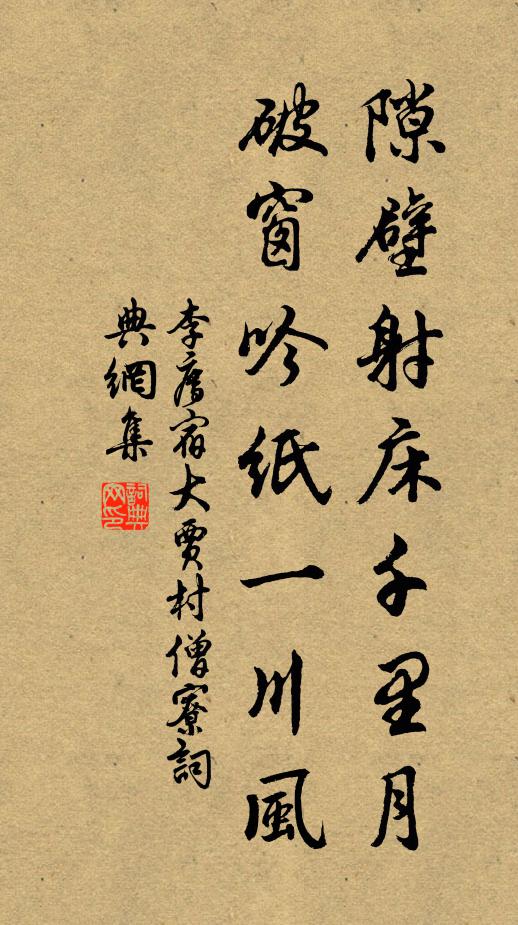 隙壁射床千里月
破窗吟紙一川風
李廌宿大賈村僧寮詞
典網集
詞典
网印